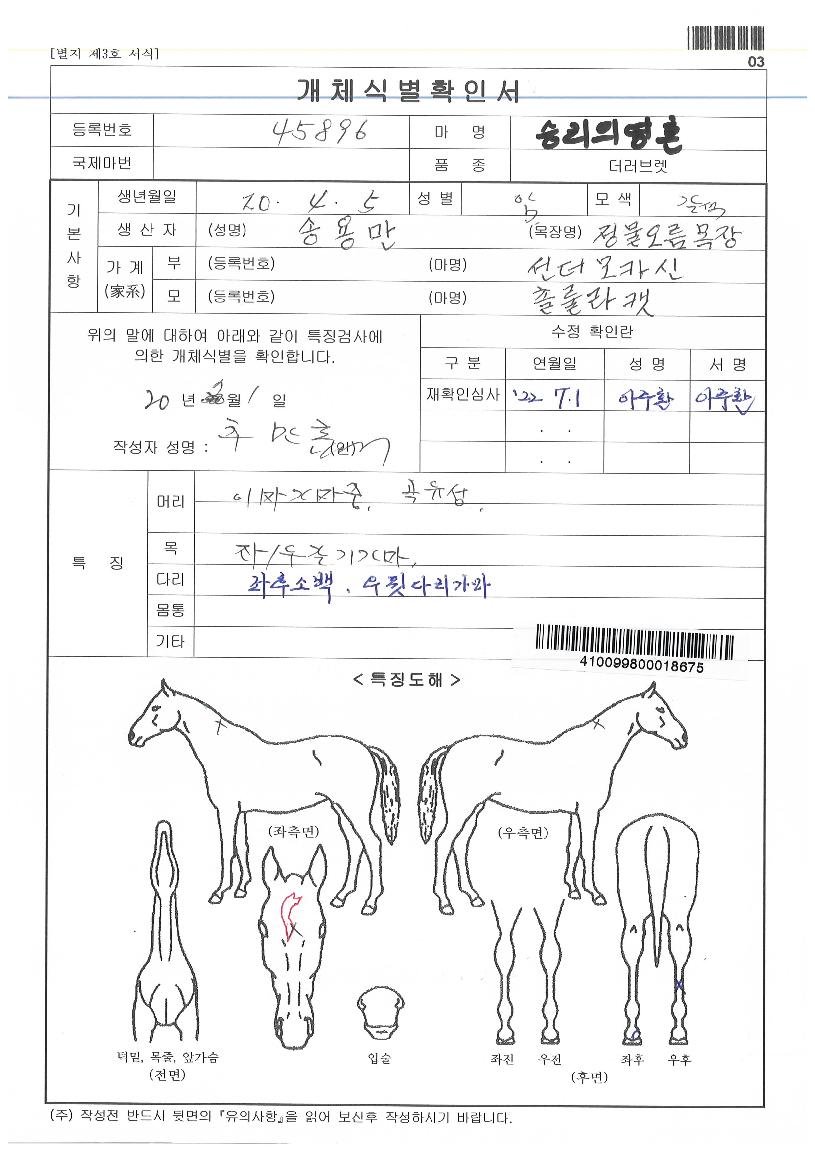 [별지 제3호 서식]
03
개체식별확인서
등록번호 45896 마 명 승리의영혼
국제마번 품 종 더러브렛
기본사항
생년월일 20. 4. 5 성별 암 모색 갈색
생 산 자 (성명) 송용만 (목장명) 정물오름목장
가계(家系) 부 (등록번호) (마명) 선더모카신
모 (등록번호) (마명) 홀룰라캣
위의 말에 대하여 아래와 같이 특징검사에
의한 개체식별을 확인합니다.
20 년 월 1 일
작성자 성명 :
수정 확인란
구 분 연월일 성 명 서 명
재확인심사 '22 7.1 이주환 이주환
. .
. .
특 징
머리
목
다리 좌후소백, 우뒷다리가마
몸통
기타
410099800018675
< 특징도해 >
(좌측면) (우측면)
너밑, 목줄, 앞가슴
(전면)
입술
좌전 우전 좌후 우후
(후면)
(주) 작성전 반드시 뒷면의 『유의사항』을 읽어 보신후 작성하시기 바랍니다.